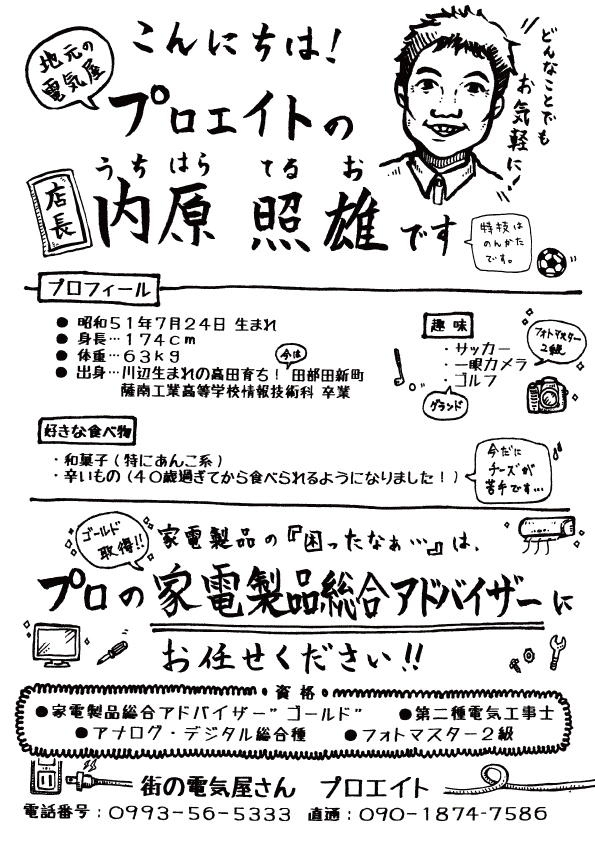 地元の
電気屋
こんにちは！
どんなことでも
お気軽に！
プロエイトの
店長
うちはら てるお
内原 照雄です
特技は
のんかた
です。
プロフィール
● 昭和51年7月24日 生まれ
● 身長…174cm
● 体重…63kg
● 出身…川辺生まれの高田育ち！ 今は 田部田新町
薩南工業高等学校情報技術科 卒業
趣味
・サッカー
・一眼カメラ
・ゴルフ
フォトマスター
2級
グランド
好きな食べ物
・和菓子（特にあんこ系）
・辛いもの（40歳過ぎてから食べられるようになりました！）
今だに
チーズが
苦手です…
ゴールド
取得!!
家電製品の『困ったなぁ…』は、
プロの家電製品総合アドバイザーに
お任せください!!
・資格・
●家電製品総合アドバイザー”ゴールド” ●第二種電気工事士
●アナログ・デジタル総合種 ●フォトマスター2級
街の電気屋さん プロエイト
電話番号：0993-56-5333 直通：090-1874-7586